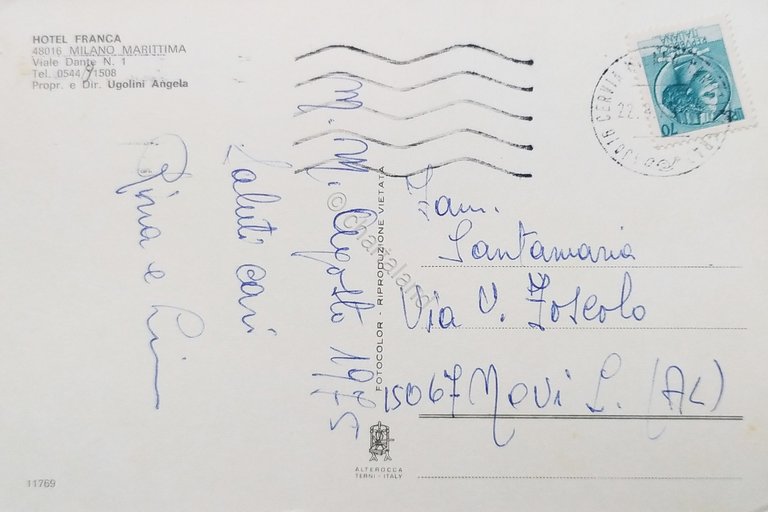 HOTEL FRANCA
48016 MILANO MARITTIMA
Viale Dante N. 1
Tel. 0544 71508
Propr. e Dir. Ugolini Angela
M. M. Agosto 1975
Saluti cari
Pina e
Fam.
Santamaria
Via U. Foscolo
15067 Novi L. (AL)
FOTOCOLOR - RIPRODUZIONE VIETATA
© chartaland
48016 CERVIA
22.8
70
ALTEROCCA
TERNI - ITALY
11769